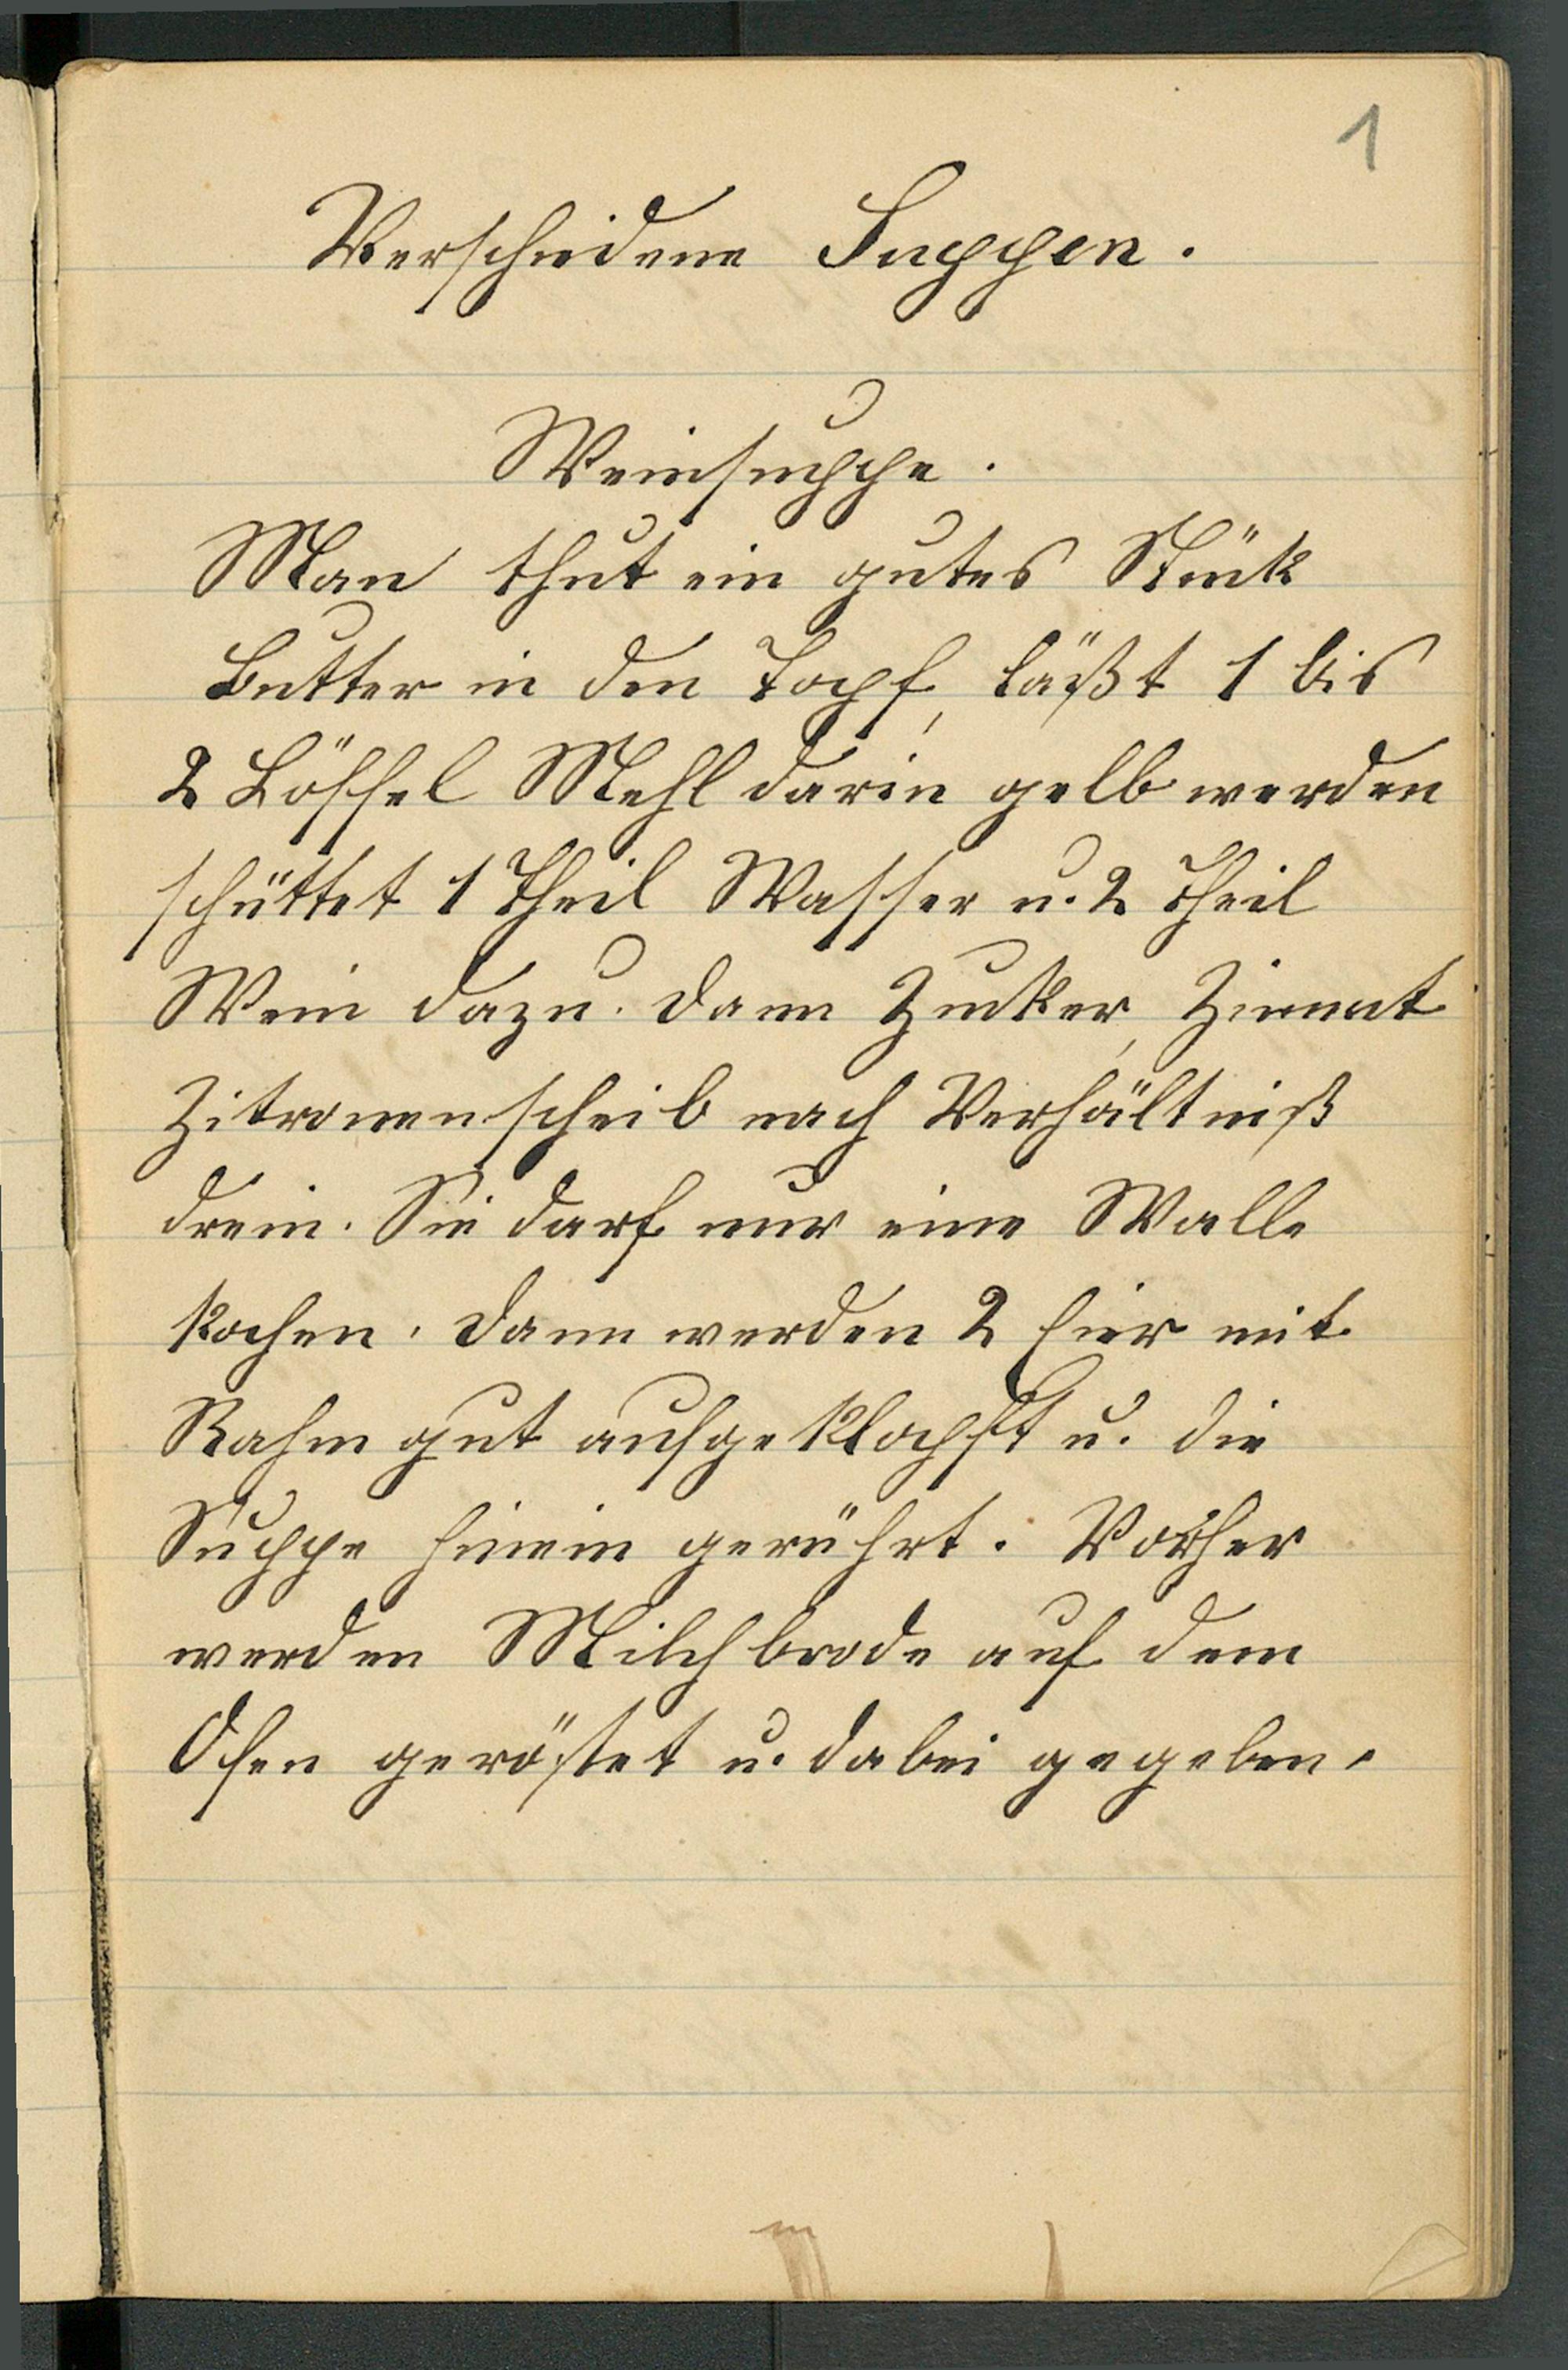 1
Verschiedene Suppen.
Weinsuppe.
Man thut ein gutes Stück
Butter in den Topf, läßt 1 bis
2 Löffel Mehl darin gelb werden
schüttet 1 Theil Wasser u. 2 Theil
Wein dazu. dann Zucker, Zimmt
Zitronenscheib nach Verhältniß
drein. Sie darf nur eine Walle
kochen. dann werden 2 Eier mit
Rahm gut aufgeklopft u. die
Suppe hinein gerührt. Vorher
werden Milchbrode auf dem
Ofen geröstet u. dabei gegeben.